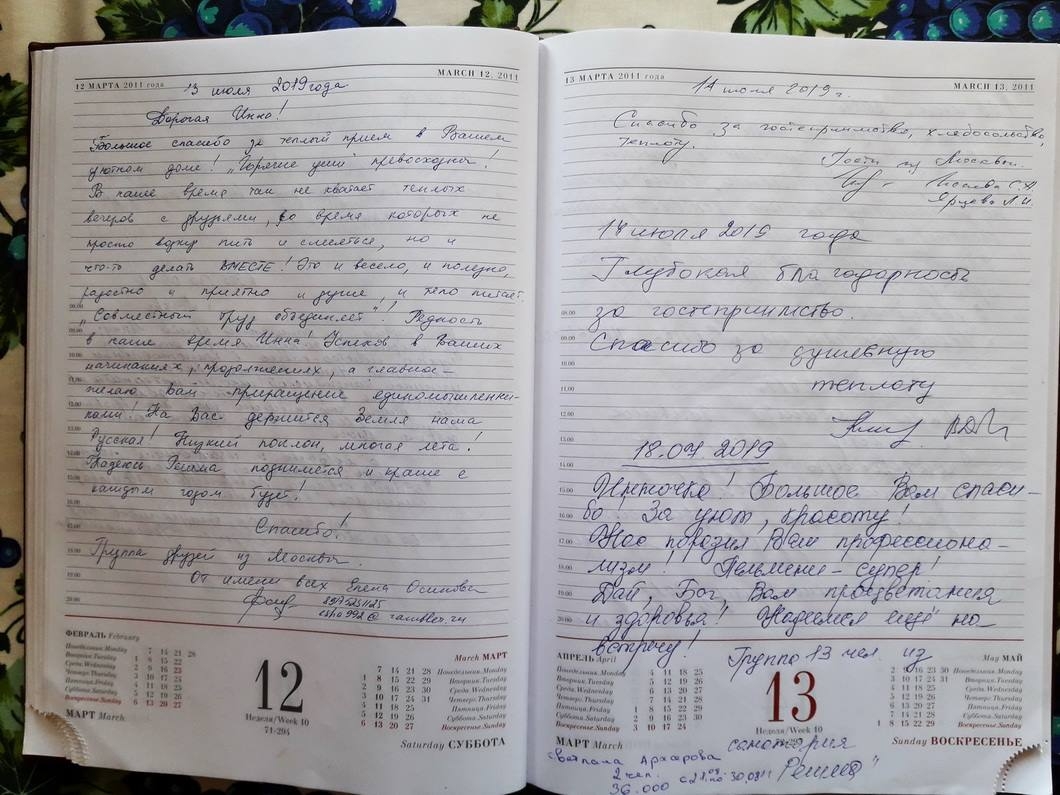 12 МАРТА 2011 года
MARCH 12, 2011
13 июля 2019 года
Дорогая Инна!
Большое спасибо за теплый прием в Вашем
уютном доме! „Горячие уши" превосходны!
В наше время так не хватает теплых
вечеров с друзьями, во время которых не
просто водку пить и смеяться, но и
что-то делать ВМЕСТЕ! Это и весело, и полезно,
радостно и приятно и душе, и тело питает.
„Совместный труд объединяет", Редкость
в наше время Инна! Успехов в Ваших
начинаниях, продолжениях, а главное –
желаю Вам приращение единомышленни-
ками! На Вас держится Земля наша
Русская! Низкий поклон, многая лета!
Надеюсь Решма поднимется и краше с
каждым годом будет!
Спасибо!
Группа друзей из Москвы.
От имени всех Елена Осипова
rambler.ru
08.00
09.00
10.00
11.00
12.00
13.00
14.00
15.00
16.00
17.00
18.00
19.00
20.00
ФЕВРАЛЬ February
Понедельник.Monday 7 14 21 28
Вторник.Tuesday 1 8 15 22
Среда.Wednesday 2 9 16 23
Четверг.Thursday 3 10 17 24
Пятница.Friday 4 11 18 25
Суббота.Saturday 5 12 19 26
Воскресенье.Sunday 6 13 20 27
МАРТ March
12
Неделя/Week 10
71-294
March МАРТ
7 14 21 28 Понедельник.Monday
1 8 15 22 29 Вторник.Tuesday
2 9 16 23 30 Среда.Wednesday
3 10 17 24 31 Четверг.Thursday
4 11 18 25 Пятница.Friday
5 12 19 26 Суббота.Saturday
6 13 20 27 Воскресенье.Sunday
Saturday СУББОТА
13 МАРТА 2011 года
MARCH 13, 2011
14 июля 2019 г.
Спасибо за гостеприимство, хлебосольство,
теплоту.
Гости из Москвы.
14 июля 2019 года
Глубокая благодарность
за гостеприимство.
Спасибо за душевную
теплоту
18.07 2019
Инночка! Большое Вам спаси-
бо! За уют, красоту!
Нас поразил Ваш профессиона-
лизм! Пельмени – супер!
Дай, Бог, Вам процветания
и здоровья! Надеемся ещё на
встречу!
Группа 13 чел из
санатория
"Решма"
08.00
09.00
10.00
11.00
12.00
13.00
14.00
15.00
16.00
17.00
18.00
19.00
20.00
АПРЕЛЬ April
Понедельник.Monday 4 11 18 25
Вторник.Tuesday 5 12 19 26
Среда.Wednesday 6 13 20 27
Четверг.Thursday 7 14 21 28
Пятница.Friday 1 8 15 22 29
Суббота.Saturday 2 9 16 23 30
Воскресенье.Sunday 3 10 17 24
МАРТ March
13
Неделя/Week 10
May МАЙ
2 9 16 23 30 Понедельник.Monday
3 10 17 24 31 Вторник.Tuesday
4 11 18 25 Среда.Wednesday
5 12 19 26 Четверг.Thursday
6 13 20 27 Пятница.Friday
7 14 21 28 Суббота.Saturday
1 8 15 22 29 Воскресенье.Sunday
Sunday ВОСКРЕСЕНЬЕ
Светлана Архарова
2 чел.
36.000